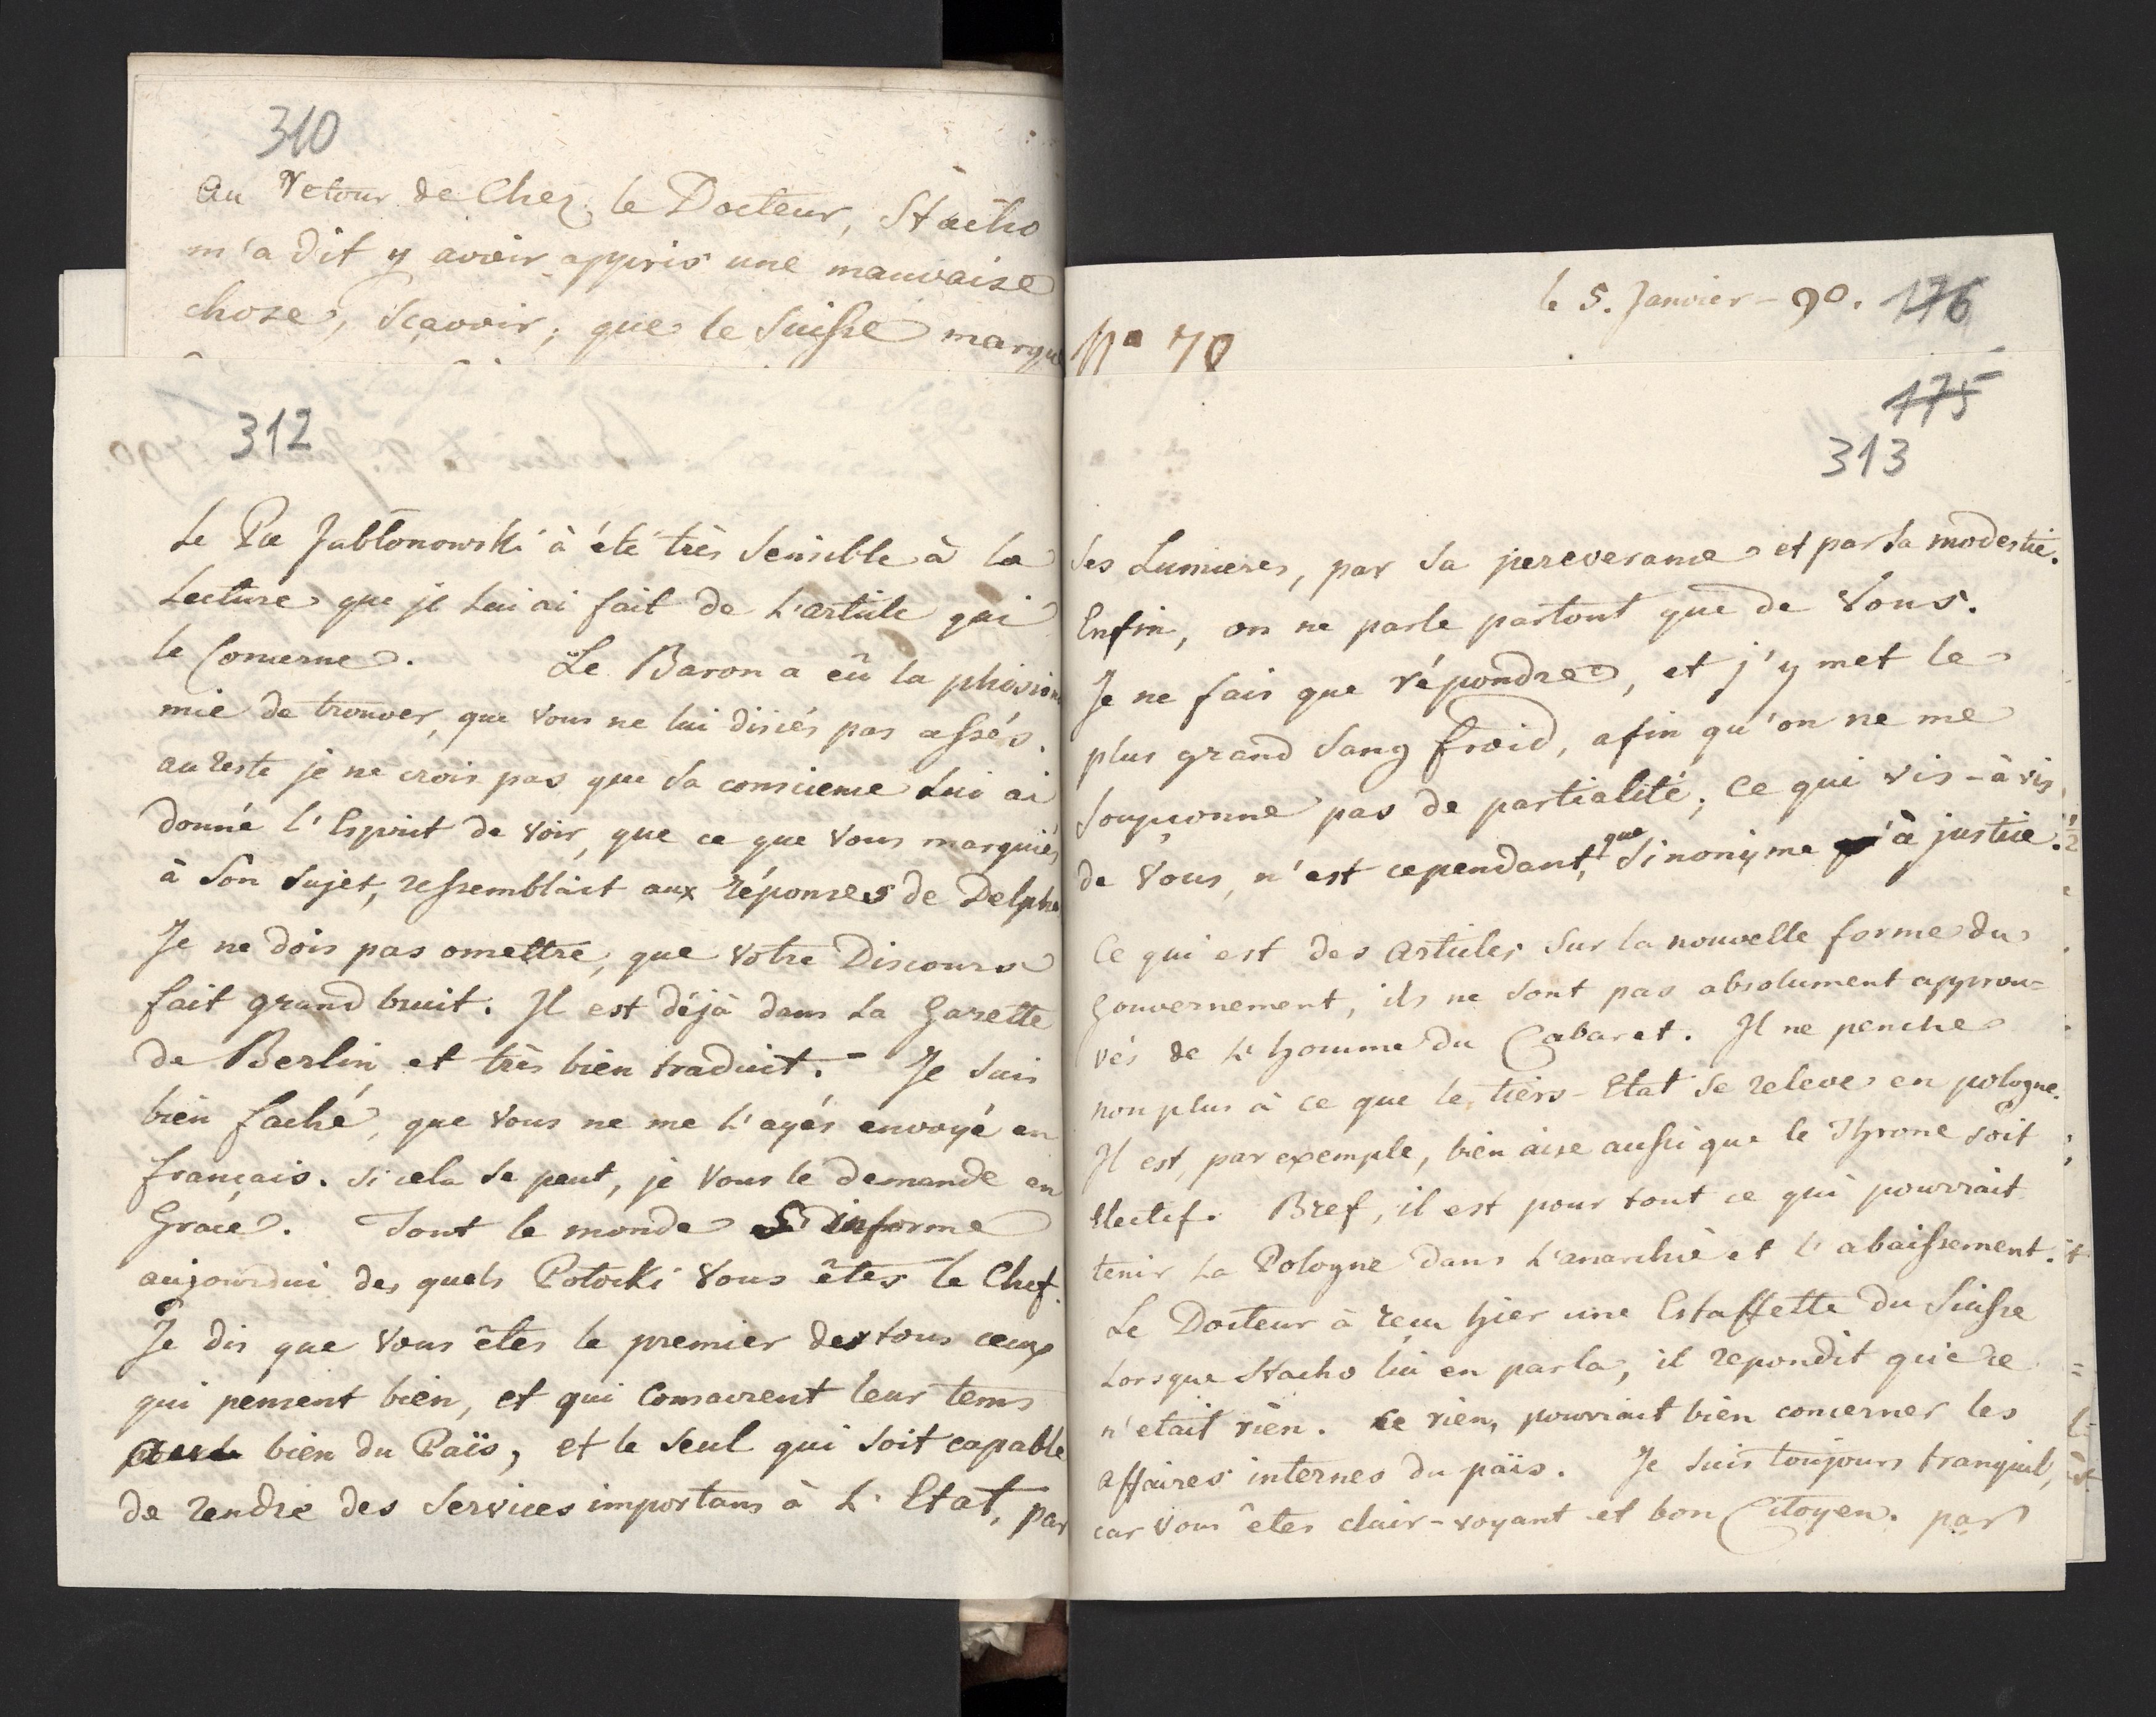 310
Au retour de Chez le Docteur, Stacho
m'a dit y avoir appris une mauvaise
chose, Sçavoir; que le Suisse marqu
312
Le Pce Jabłonowski à été très Sensible à la
Lecture que je Lui ai fait de L'article qui
le Concerne. Le Baron a eû la phisiono
mie de trouver, que Vous ne lui disiés pas assés.
au reste je ne crois pas que Sa conscience Lui ai
donné l'Esprit de Voir, que ce que Vous marquiés
à Son Sujet, ressemblait aux réponses de Delphe
Je ne dois pas omettre, que Votre Discours
fait grand bruit. Il est déjà dans La Gazette
de Berlin et très bien traduit. - Je Suis
bien faché, que Vous ne me L'ayés envoyé en
français. Si cela Se peut, je Vous le demande en
Grace. Tout le monde S'informe
aujourdui des quels Potocki Vous êtes le Chef.
Je dis que Vous êtes le premier de tous ceux
qui pensent bien, et qui Consacrent leur tems
au bien du Païs, et le Seul qui Soit capable
de rendre des Services importans à L'Etat, par
le 5. Janvier - 90. 176
No 70
175
313
Ses Lumieres, par Sa perseverance et par Sa modestie.
Enfin, on ne parle partout que de Vous.
Je ne fais que répondre, et j'y met le
plus grand Sang froid, afin qu'on ne me
Soupçonne pas de partialité; Ce qui vis-à vis
de Vous, n'est cependant, que Sinonyme à justice.
Ce qui est des Articles Sur la nouvelle forme du
Gouvernement, ils ne Sont pas absolument approu=
vés de L'homme du Cabaret. Il ne penche
non plus à ce que le tiers-Etat Se releve en pologne.
Il est, par exemple, bien aise aussi que le Throne Soit
Electif. Bref, il est pour tout ce qui pourrait
tenir La Pologne dans L'anarchie et l'abaissement.
Le Docteur à reçu hier une Estaffette du Suisse
Lorsque Stacho lui en parla, il repondit que ce
n'etait rien. Ce rien, pourrait bien concerner les
affaires internes du païs. Je Suis toujours tranquil,
car Vous êtes clair-voyant et bon Citoyen. par